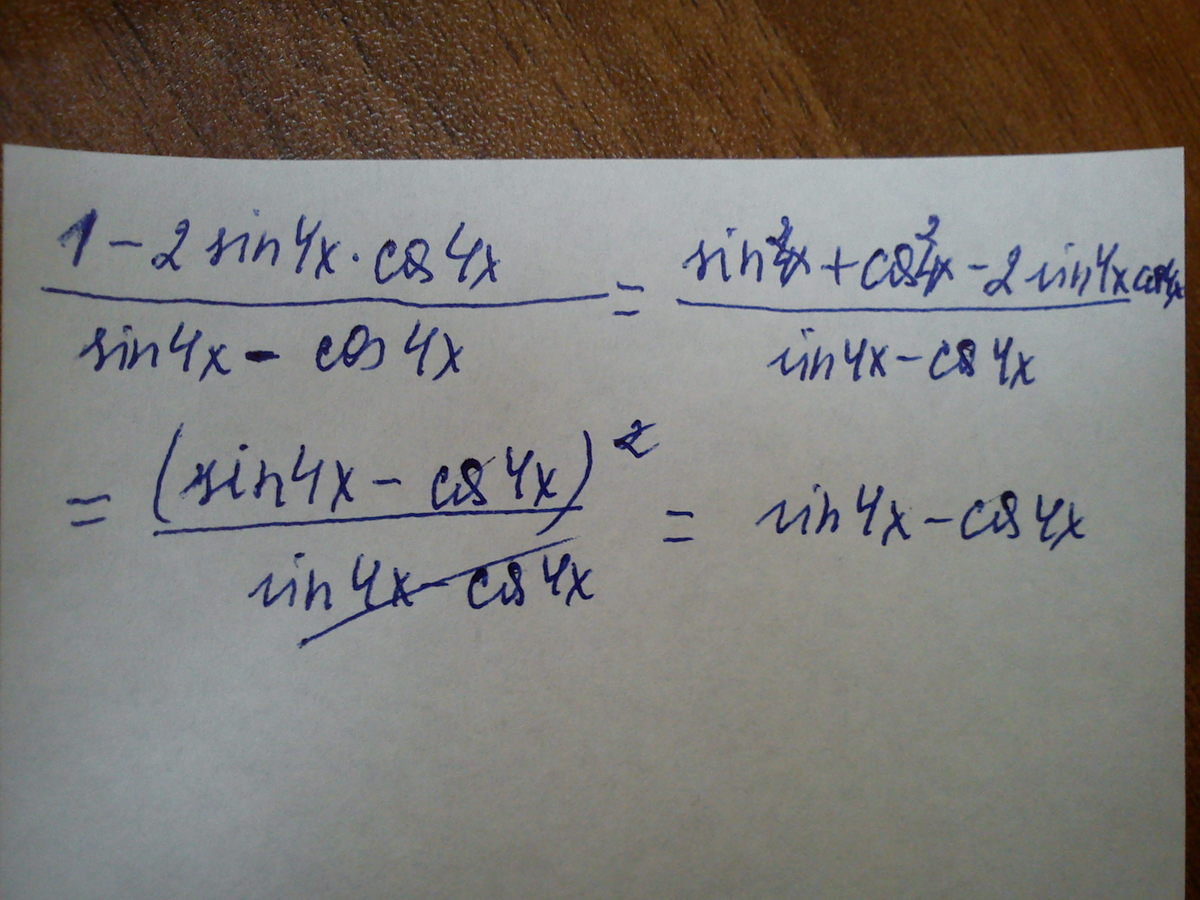 1 - 2 sin 4x · cos 4x / sin 4x - cos 4x = sin² 4x + cos² 4x - 2 sin 4x cos 4x / sin 4x - cos 4x
= (sin 4x - cos 4x)² / sin 4x - cos 4x = sin 4x - cos 4x